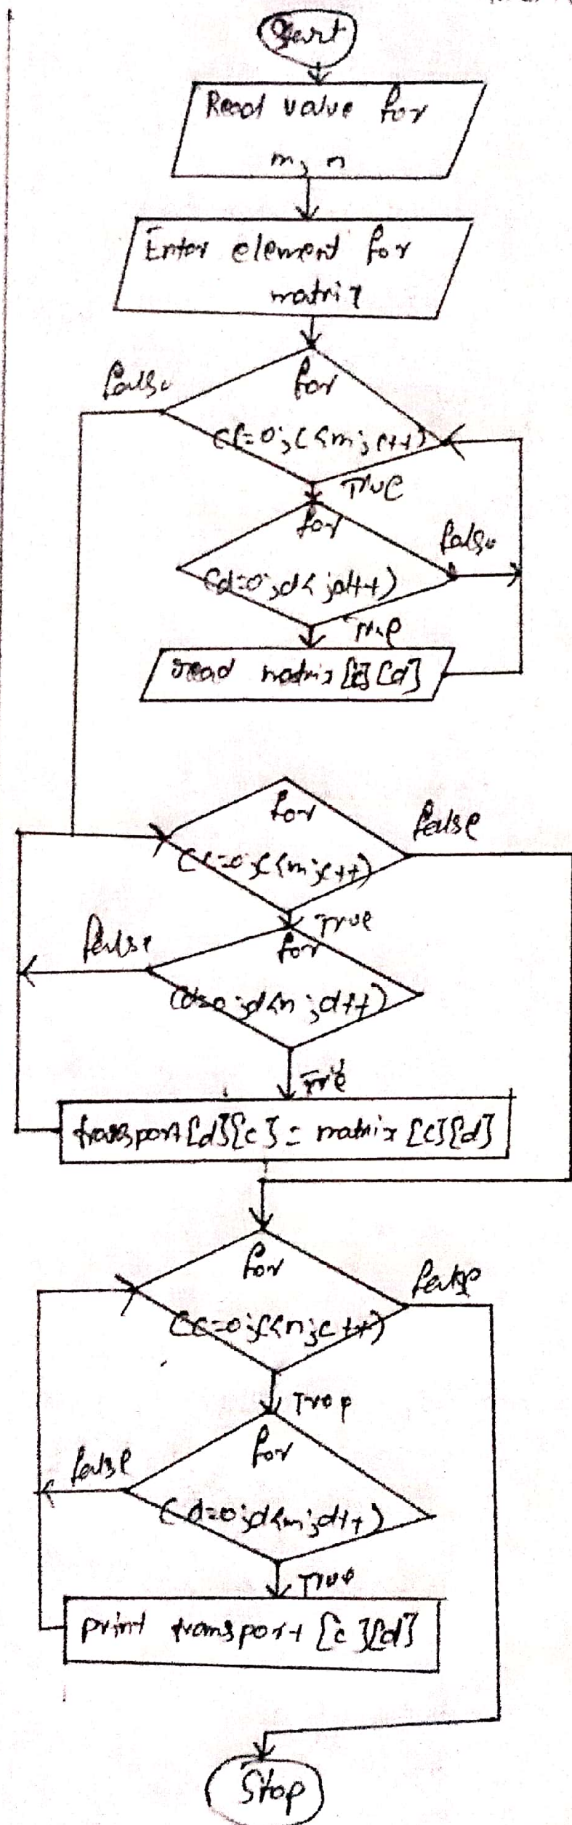 Start
Read value for
m, n
Enter element for
matrix
false
for
(c=0;c<m;c++)
True
for
false
(d=0;d<;d++)
True
read matrix[c][d]
for
false
(c=0;c<m;c++)
True
false
for
(d=0;d<n;d++)
True
transport[d][c]=matrix[c][d]
for
false
(c=0;c<n;c++)
True
for
false
(d=0;d<m;d++)
True
print transport[c][d]
Stop